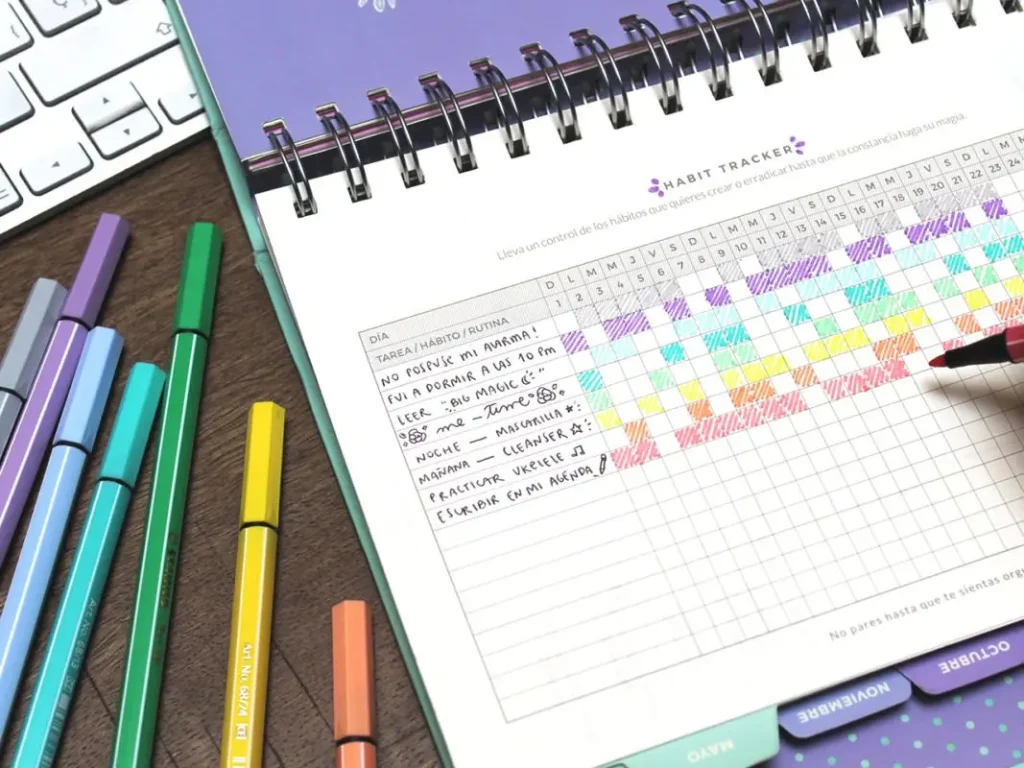 HABIT TRACKER
Lleva un control de los hábitos que quieres crear o erradicar hasta que la constancia haga su magia.
DÍA D L M M J V S D L M M J V S D L M M J V S D L M
TAREA / HÁBITO / RUTINA 1 2 3 4 5 6 7 8 9 10 11 12 13 14 15 16 17 18 19 20 21 22 23 24
NO POSPUSE MI ALARMA!
FUI A DORMIR A LAS 10 PM
LEER "BIG MAGIC"
me-time
NOCHE — MASCARILLA
MAÑANA — CLEANSER
PRACTICAR UKELELE
ESCRIBIR EN MI AGENDA
No pares hasta que te sientas
OCTUBRE
NOVIEMBRE
MAYO
Art. No. 68/24